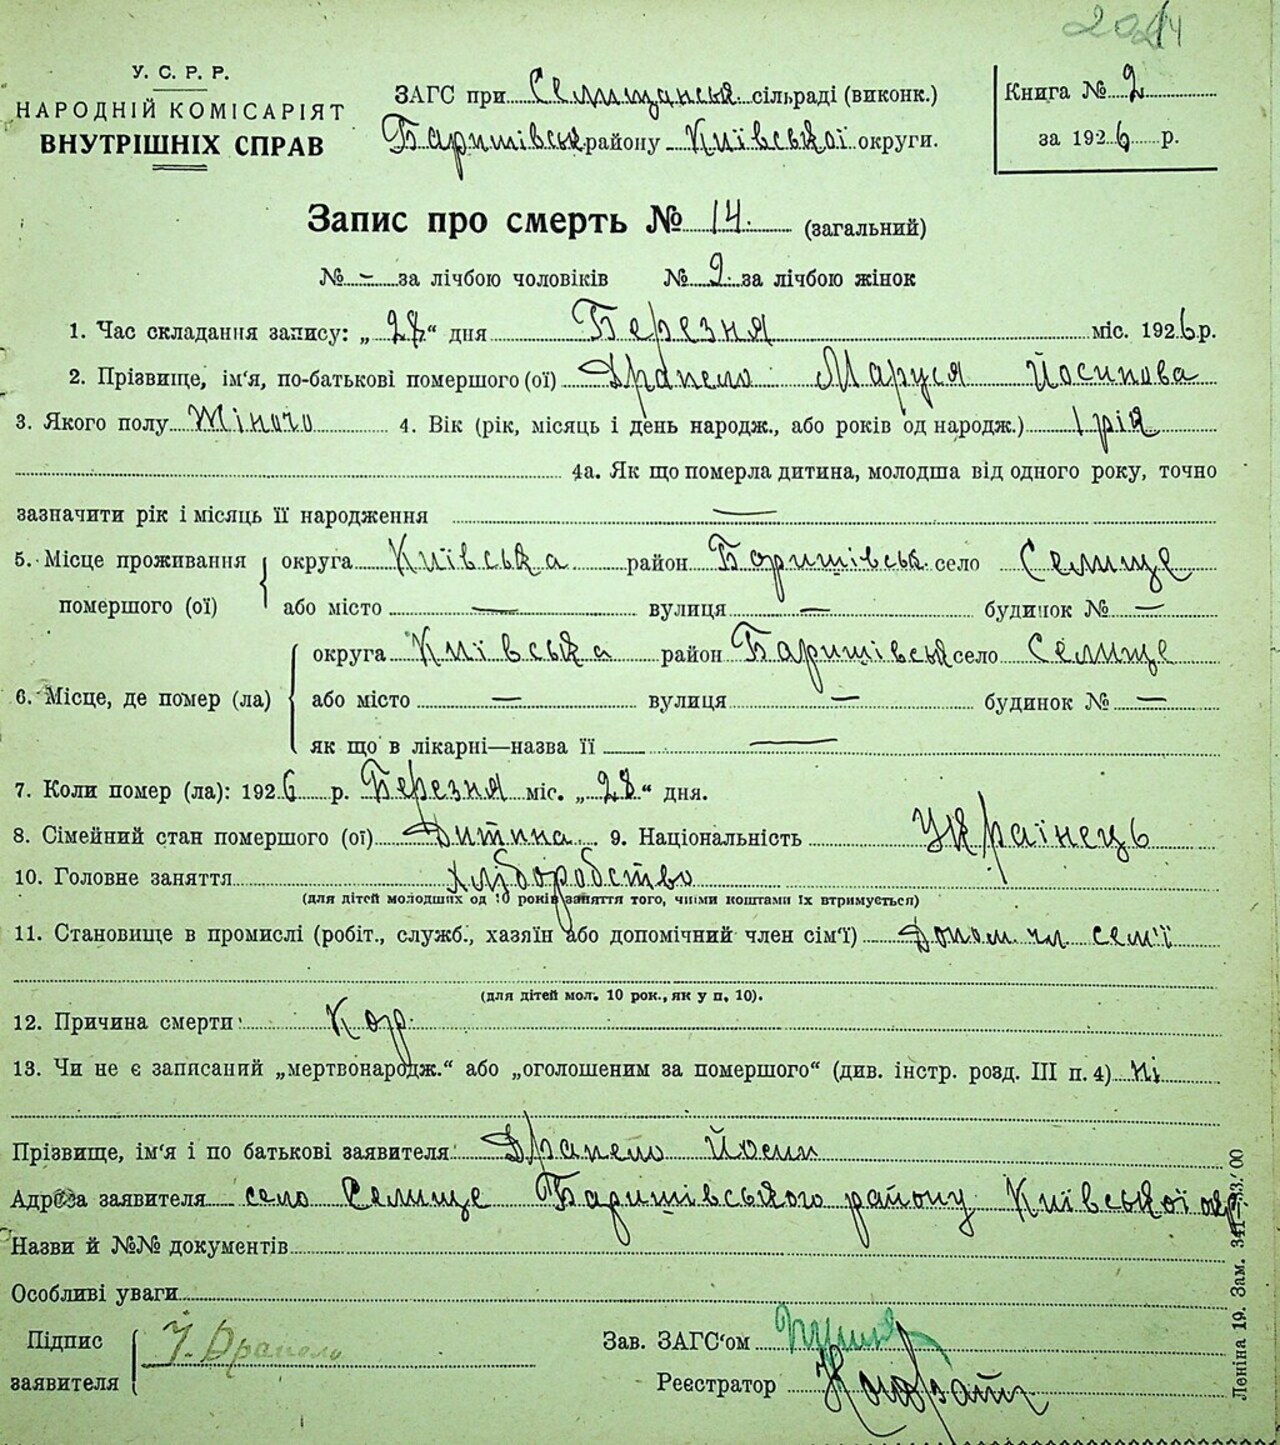 У. С. Р. Р.
НАРОДНІЙ КОМІСАРІЯТ
ВНУТРІШНІХ СПРАВ
ЗАГС при Селищанськ. сільраді (виконк.)
Баришівськ району Київської округи.
Книга № 2
за 1926 р.
Запис про смерть № 14. (загальний)
№ – за лічбою чоловіків № 9. за лічбою жінок
1. Час скла­дання запису: „28“ дня Березня міс. 1926 р.
2. Прізвище, ім'я, по-батькові помершого (ої) Драпело Маруся Йосипова
3. Якого полу Жіночо 4. Вік (рік, місяць і день народж., або років од народж.) 1 рік
4а. Як що померла дитина, молодша від одного року, точно
зазначити рік і місяць її народження —
5. Місце проживання помершого (ої) округа Київська район Баришівськ. село Селище
або місто — вулиця — будинок № —
6. Місце, де помер (ла) округа Київська район Баришівськ село Селище
або місто — вулиця — будинок № —
як що в лікарні—назва її —
7. Коли помер (ла): 1926 р. Березня міс. „28“ дня.
8. Сімейний стан помершого (ої) Дитина 9. Національність Українець
10. Головне заняття Хліборобство
(для дітей молодших од 10 років заняття того, чиїми коштами їх втримується)
11. Становище в промислі (робіт., служб., хазяїн або допомічний член сім'ї) Допом. чл сем'ї
(для дітей мол. 10 рок., як у п. 10).
12. Причина смерти Кор.
13. Чи не є записаний „мертвонародж.“ або „оголошеним за помершого“ (див. інстр. розд. III п. 4) ні
Прізвище, ім'я і по батькові заявителя: Драпело Йосип
Адреза заявителя село Селище Баришівського району Київської окр.
Назви й №№ документів
Особливі уваги
Підпис заявителя Й. Драпело
Зав. ЗАГС'ом
Реєстратор
Леніна 19. Зам. 341